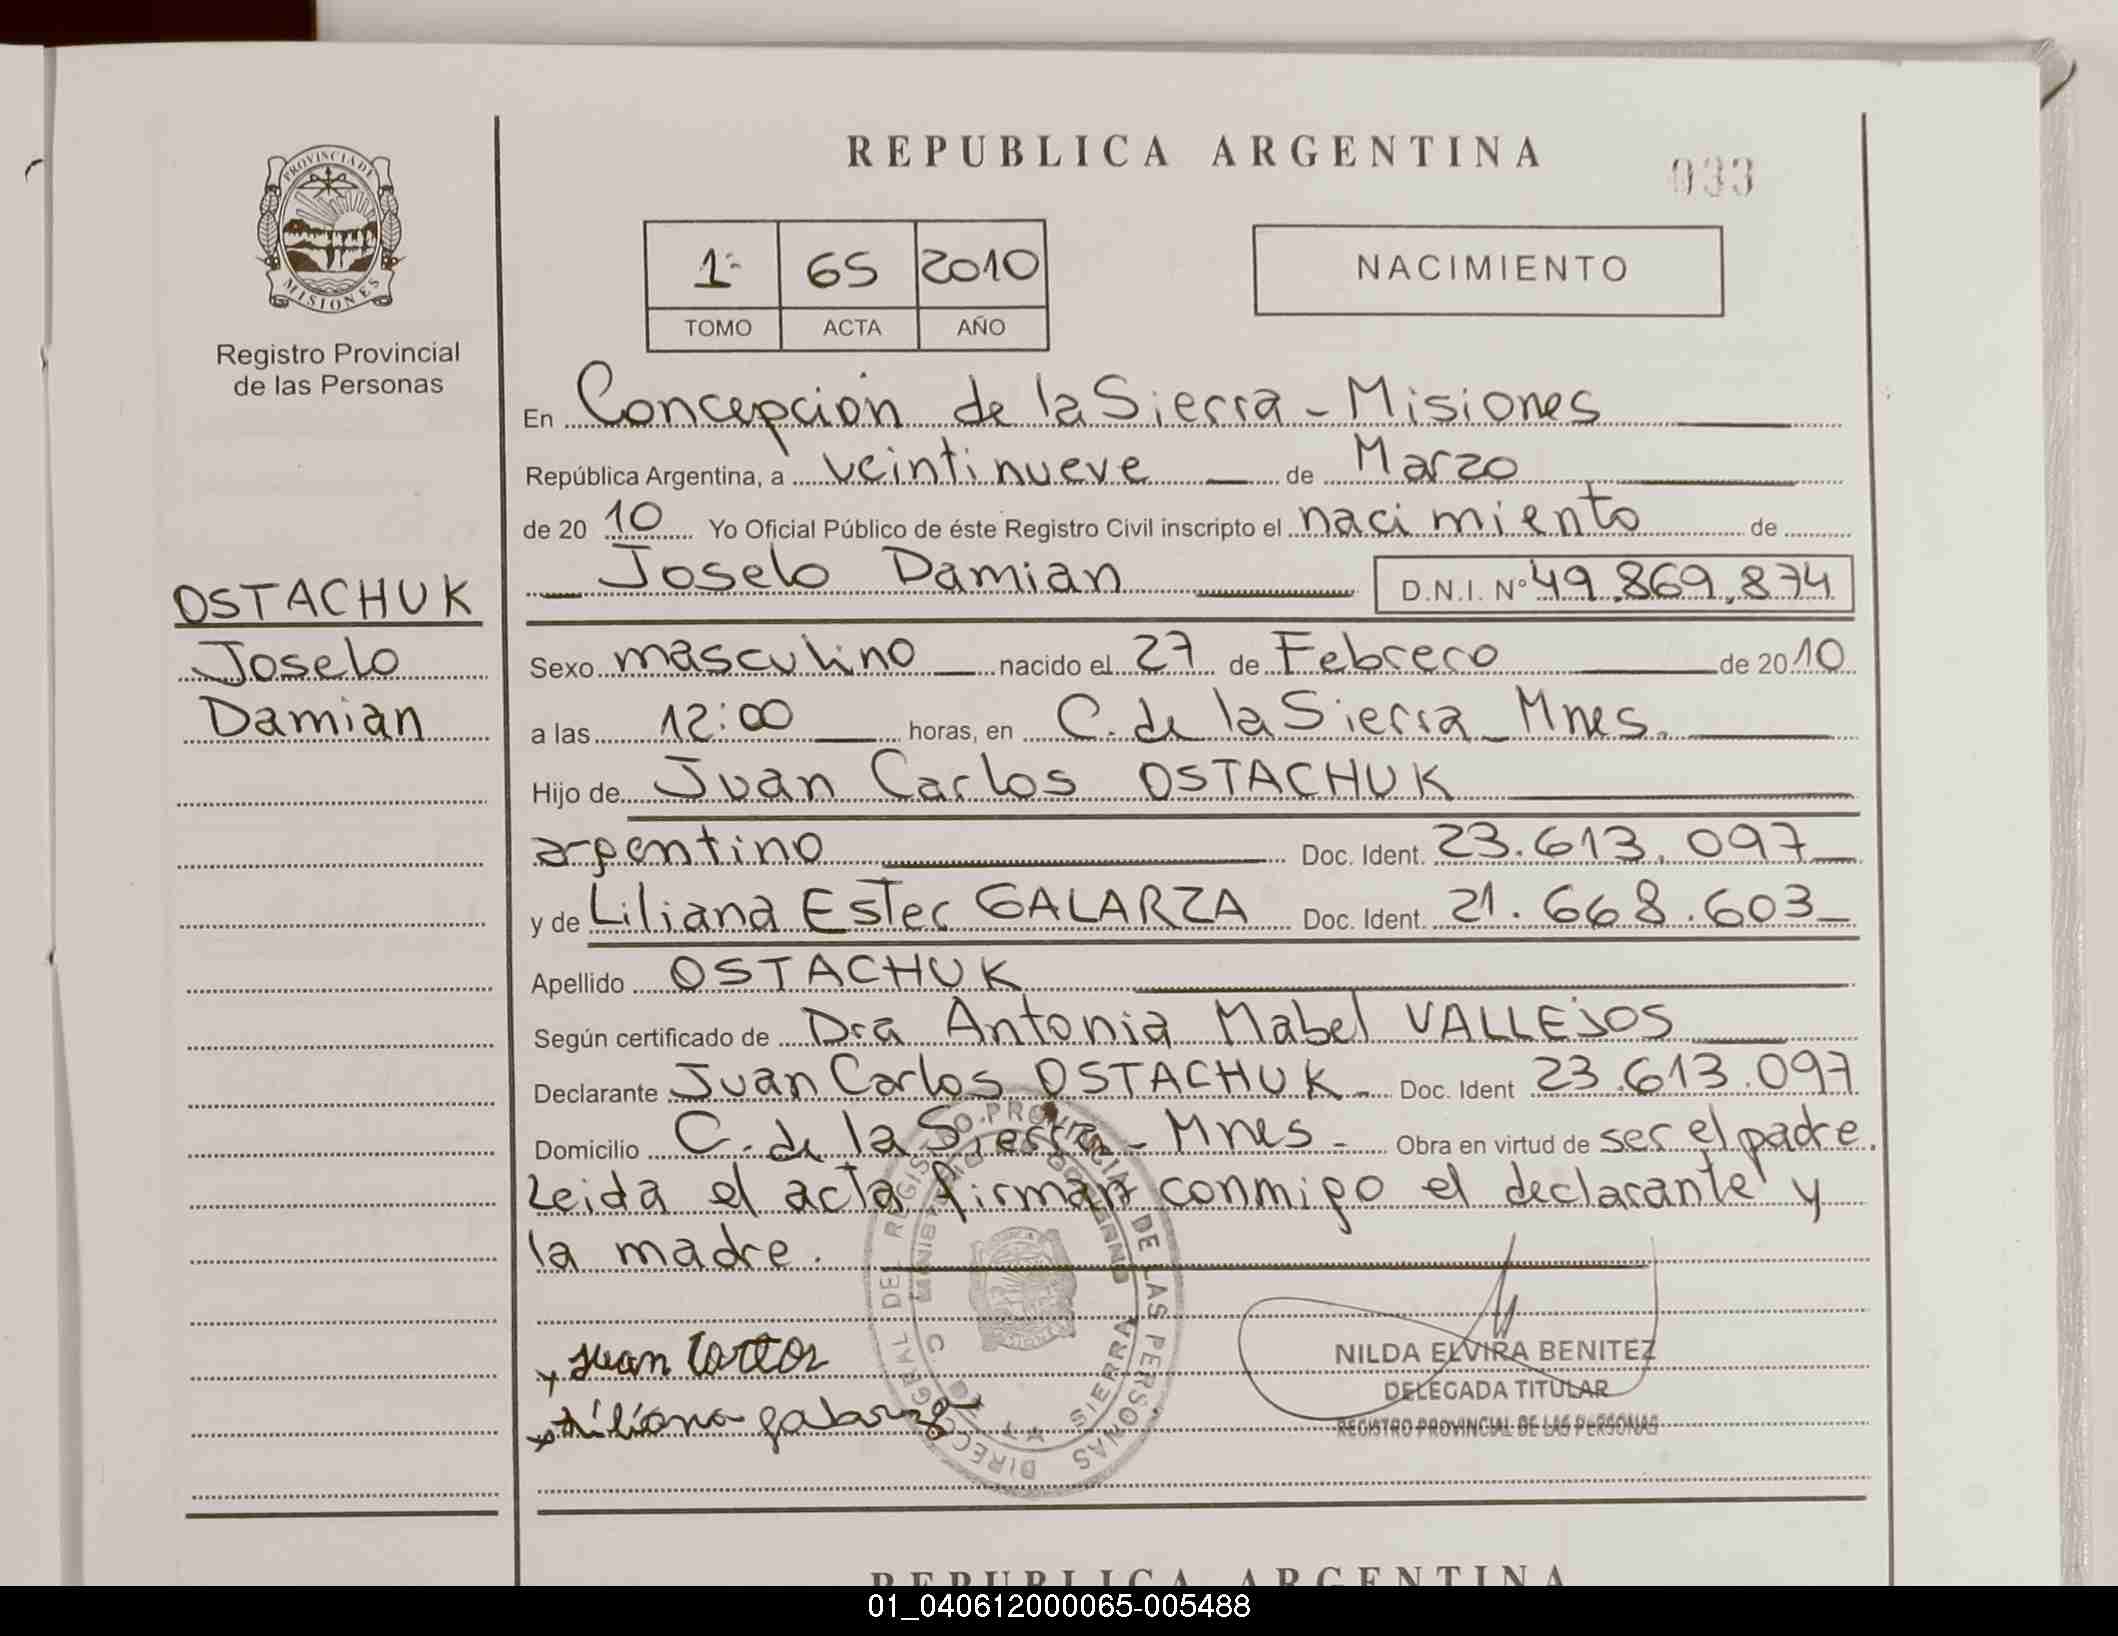 REPUBLICA ARGENTINA
033
PROVINCIA DE
MISIONES
Registro Provincial
de las Personas
1º 65 2010
TOMO ACTA AÑO
NACIMIENTO
En Concepción de la Sierra - Misiones
República Argentina, a veintinueve de Marzo
de 20 10 Yo Oficial Público de éste Registro Civil inscripto el nacimiento de
Joselo Damian D.N.I. Nº 49.869.874
OSTACHUK
Joselo
Damian
Sexo masculino nacido el 27 de Febrero de 2010
a las 12:00 horas, en C. de la Sierra - Mnes.
Hijo de Juan Carlos OSTACHUK
argentino Doc. Ident. 23.613.097
y de Liliana Ester GALARZA Doc. Ident. 21.668.603
Apellido OSTACHUK
Según certificado de Dra Antonia Mabel VALLEJOS
Declarante Juan Carlos OSTACHUK - Doc. Ident 23.613.097
Domicilio C. de la Sierra - Mnes - Obra en virtud de ser el padre.
Leida el acta firman conmigo el declarante y
la madre.
Juan Carlos
Liliana galarza
NILDA ELVIRA BENITEZ
DELEGADA TITULAR
REGISTRO PROVINCIAL DE LAS PERSONAS
REPUBLICA ARGENTINA
01_040612000065-005488